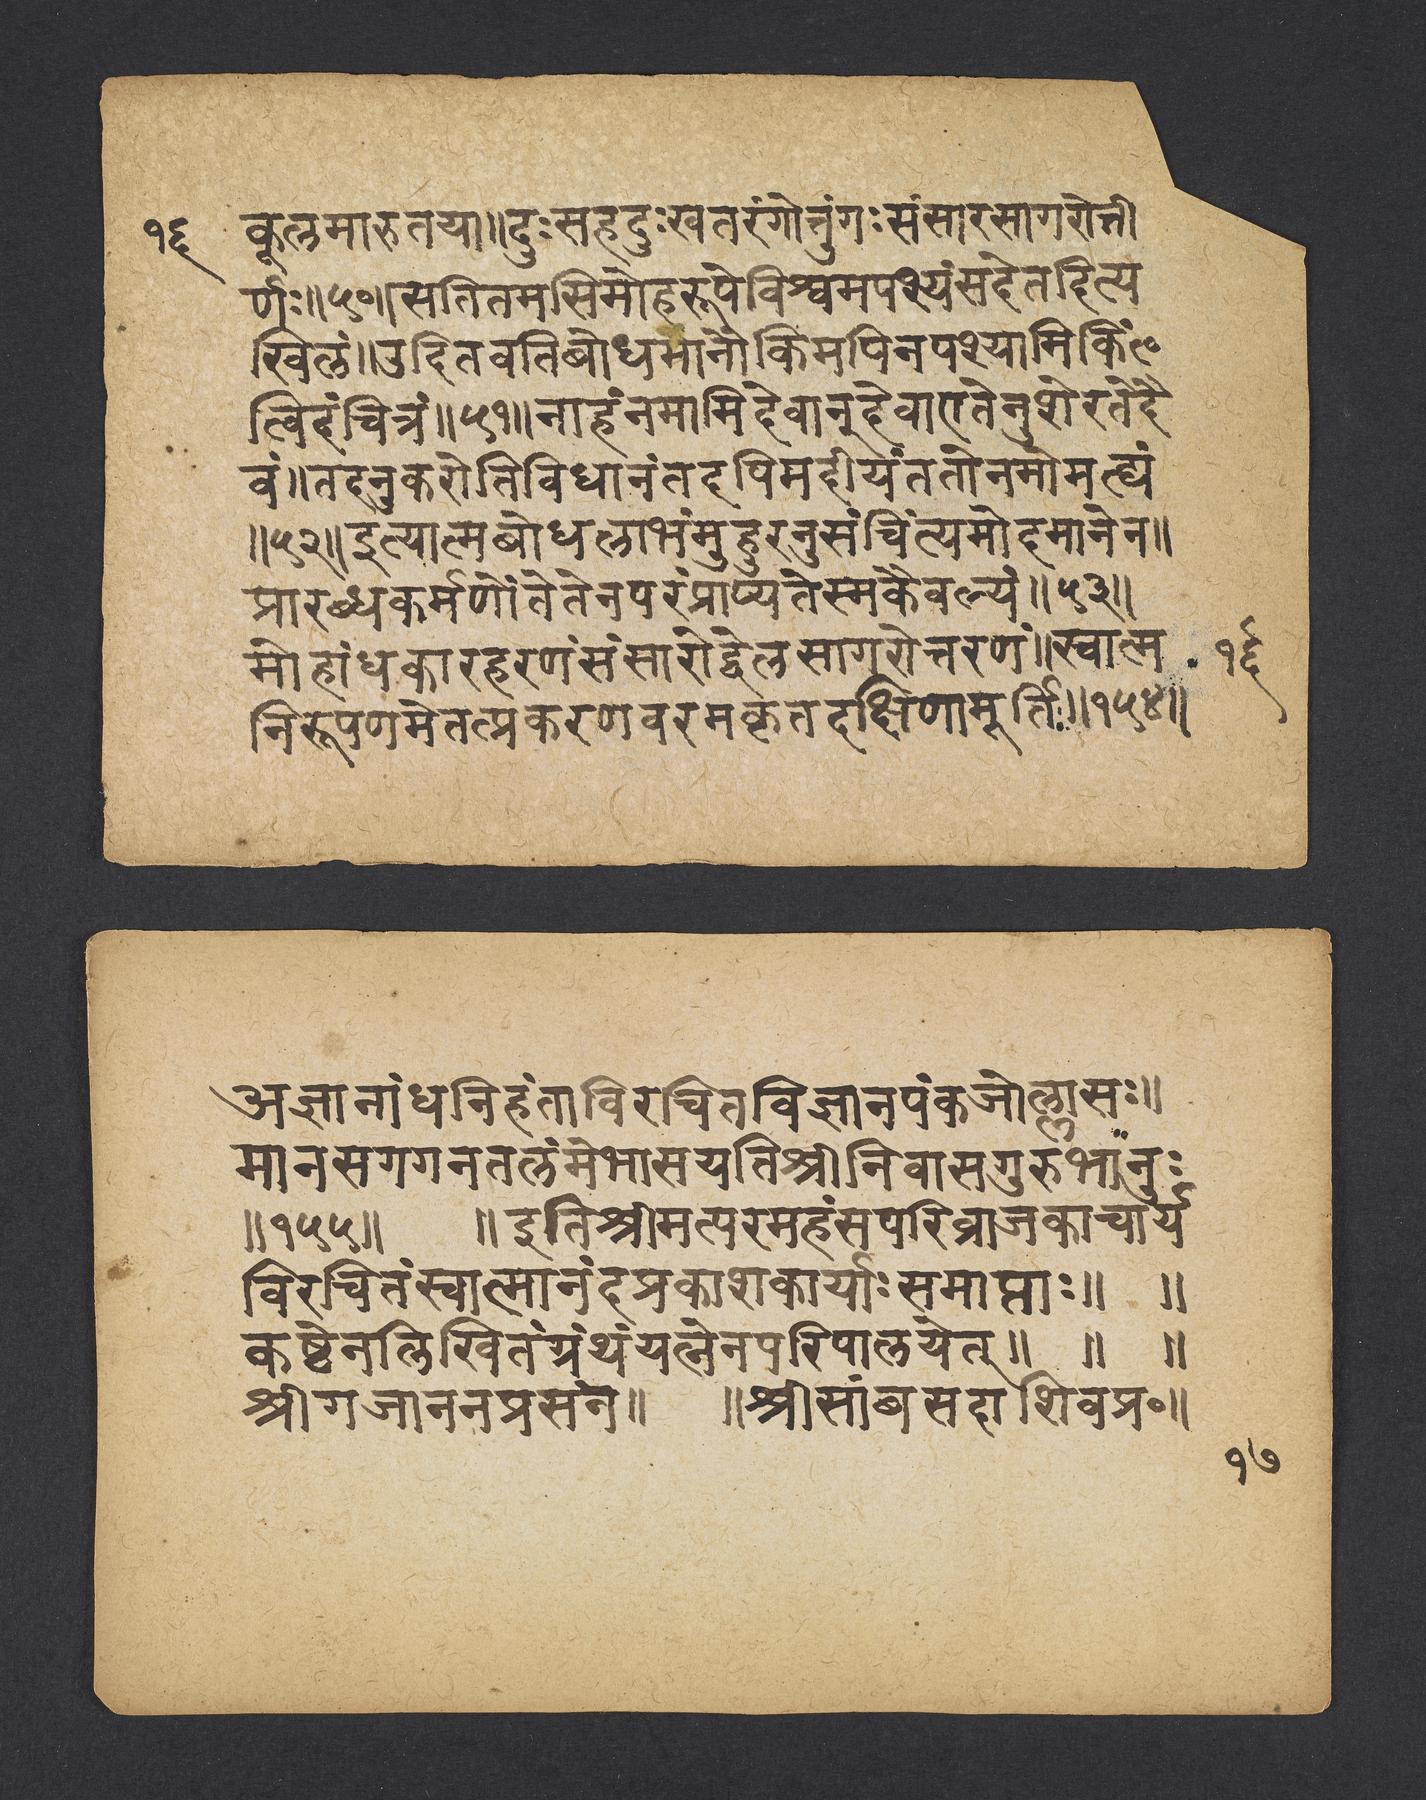 १६
कूलमारुतया॥दुःसहदुःखतरंगोत्तुंगःसंसारसागरोत्ती
र्णः॥५०॥सतितमसिमोहरूपेविश्वमपश्यंसदेतदित्य
खिलं॥उदितवतिबोधभानौकिमपिनपश्यामिकिं
त्विदंचित्रं॥५१॥नाहंनमामिदेवान्देवाएतेनुशेरतेदै
वं॥तदनुकरोतिविधानंतदपिमदीयंततोनमोमत्ह्यं
॥५२॥इत्यात्मबोधलाभंमुहुरनुसंचिंत्यमोदमानेन॥
प्रारब्धकर्मणोंतेतेनपरंप्राप्यतेस्मकैवल्यं॥५३॥
मोहांधकारहरणंसंसारोद्वेलसागरोत्तरणं॥स्वात्म
१६
निरूपणमेतत्प्रकरणवरमकृतदक्षिणामूर्तिः॥१५४॥
अज्ञानांधनिहंताविरचितविज्ञानपंकजोल्लासः॥
मानसगगनतलंमेभासयतिश्रीनिवासगुरुभानुः
॥१५५॥ ॥इतिश्रीमत्परमहंसपरिव्राजकाचार्य
विरचितंस्वात्मानंदप्रकाशकार्याःसमाप्ताः॥ ॥
कष्टेनलिखितंग्रंथंयत्नेनपरिपालयेत्॥ ॥ ॥
श्रीगजाननप्रसंन॥ ॥श्रीसांबसदाशिवप्र०॥
१७